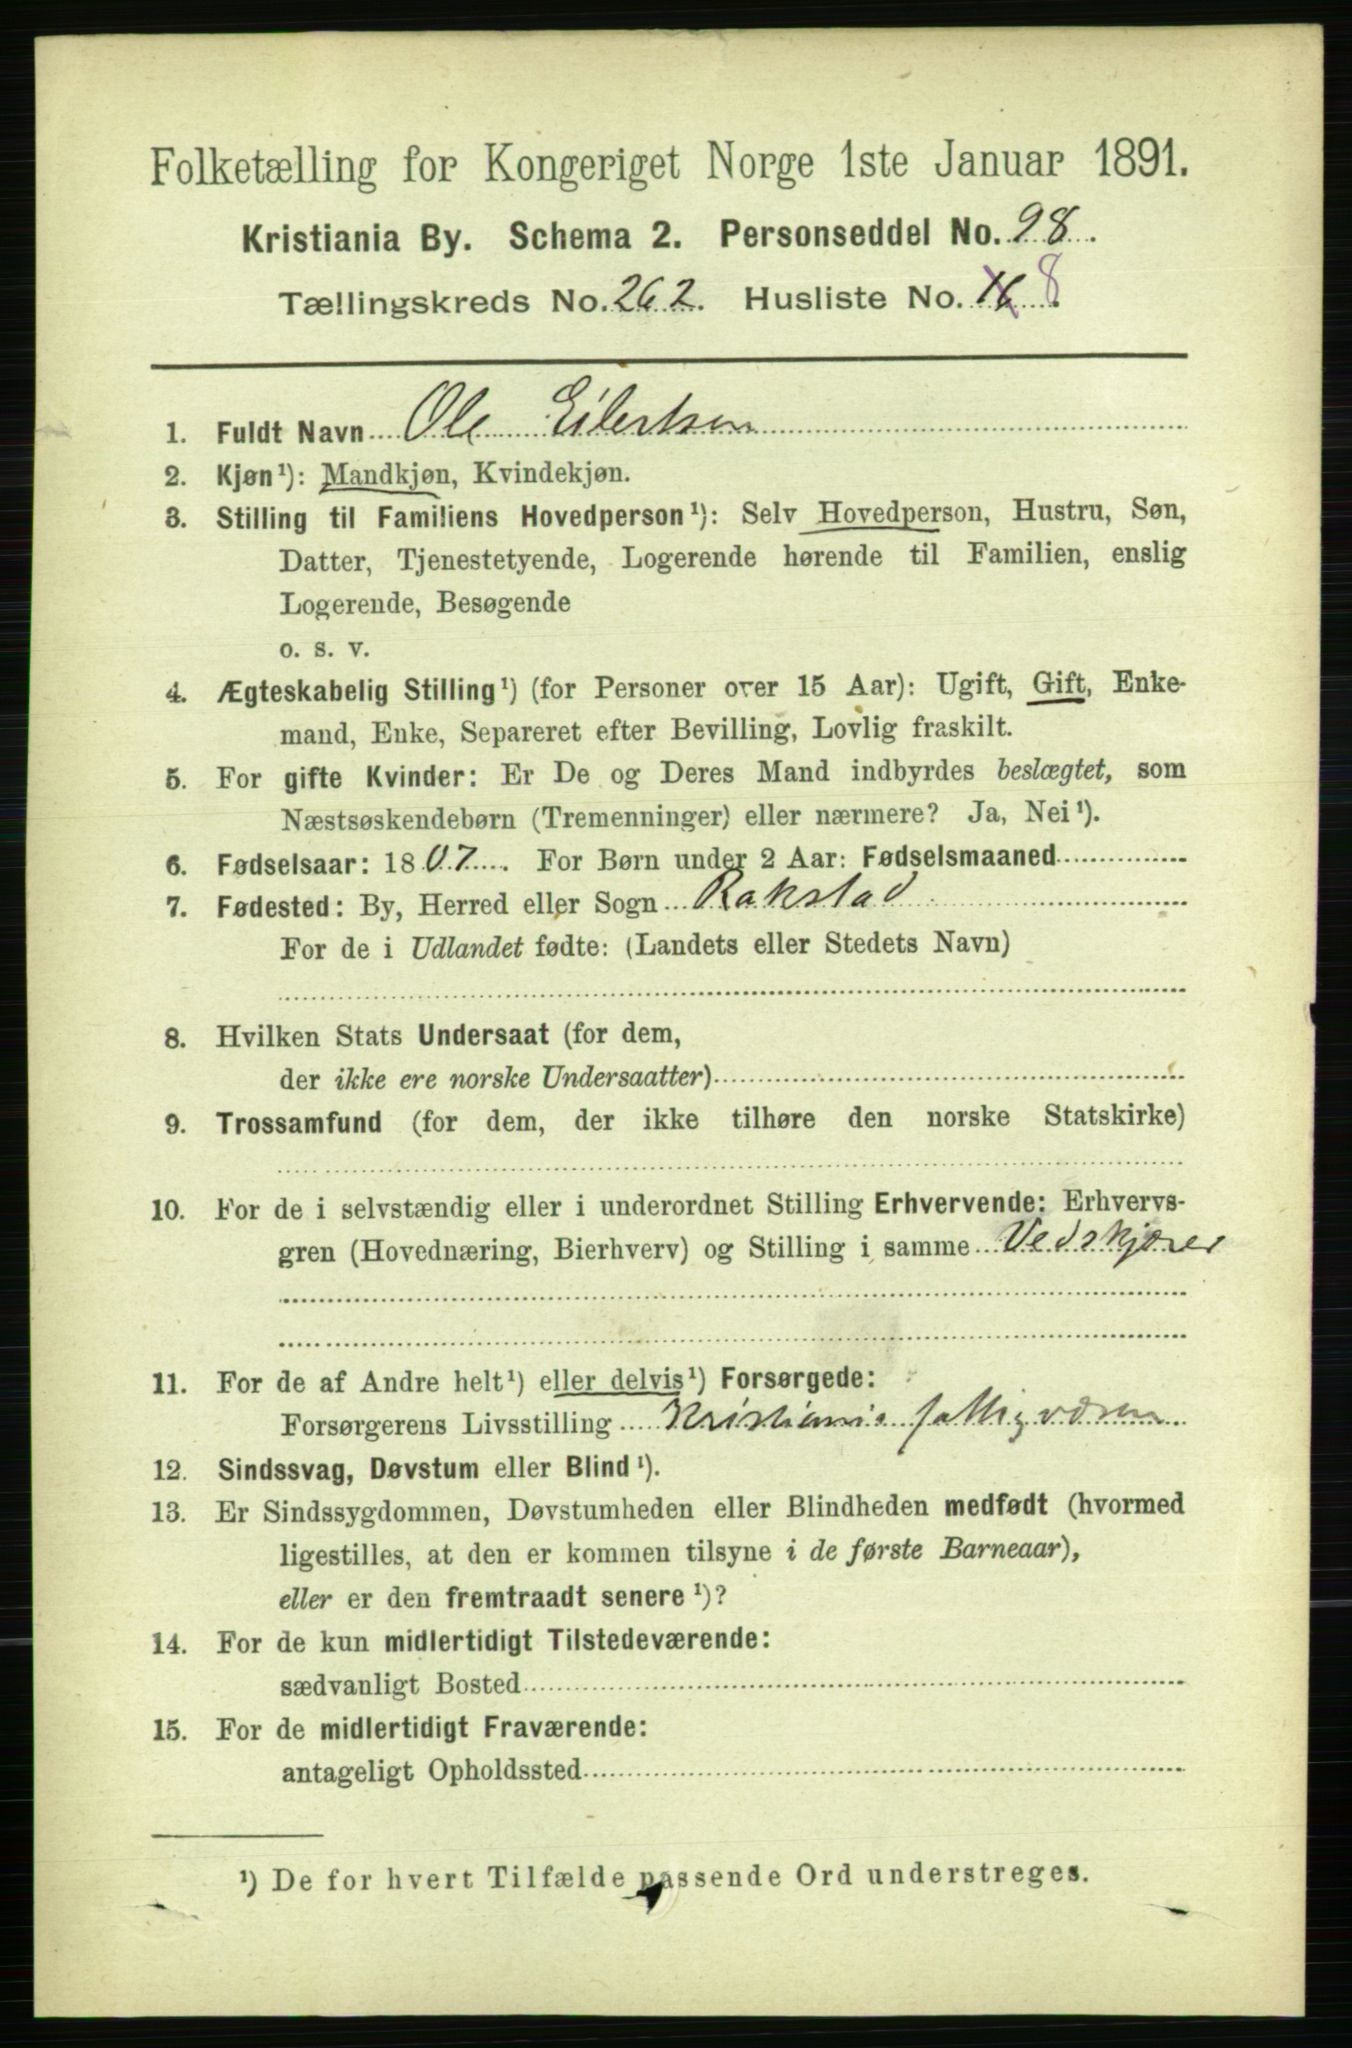 Folketælling for Kongeriget Norge 1ste Januar 1891.
Kristiania By. Schema 2. Personseddel No. 98.
Tællingskreds No. 262. Husliste No. 16 8.
1. Fuldt Navn Ole Eilertsen
2. Kjøn¹): Mandkjøn, Kvindekjøn.
3. Stilling til Familiens Hovedperson¹): Selv Hovedperson, Hustru, Søn,
Datter, Tjenestetyende, Logerende hørende til Familien, enslig
Logerende, Besøgende
o. s. v.
4. Ægteskabelig Stilling¹) (for Personer over 15 Aar): Ugift, Gift, Enke-
mand, Enke, Separeret efter Bevilling, Lovlig fraskilt.
5. For gifte Kvinder: Er De og Deres Mand indbyrdes beslægtet, som
Næstsøskendebørn (Tremenninger) eller nærmere? Ja, Nei¹).
6. Fødselsaar: 1807. For Børn under 2 Aar: Fødselsmaaned
7. Fødested: By, Herred eller Sogn Rakstad
For de i Udlandet fødte: (Landets eller Stedets Navn)
8. Hvilken Stats Undersaat (for dem,
der ikke ere norske Undersaatter)
9. Trossamfund (for dem, der ikke tilhøre den norske Statskirke)
10. For de i selvstændig eller i underordnet Stilling Erhvervende: Erhvervs-
gren (Hovednæring, Bierhverv) og Stilling i samme Vedskjærer
11. For de af Andre helt¹) eller delvis¹) Forsørgede:
Forsørgerens Livsstilling Kristiania fattigvæsen
12. Sindssvag, Døvstum eller Blind¹).
13. Er Sindssygdommen, Døvstumheden eller Blindheden medfødt (hvormed
ligestilles, at den er kommen tilsyne i de første Barneaar),
eller er den fremtraadt senere¹)?
14. For de kun midlertidigt Tilstedeværende:
sædvanligt Bosted
15. For de midlertidigt Fraværende:
antageligt Opholdssted
¹) De for hvert Tilfælde passende Ord understreges.